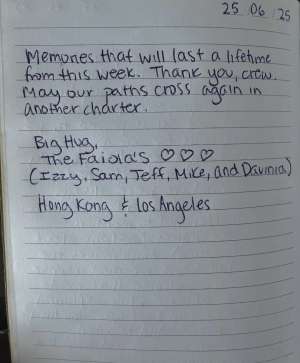 25 06 /25
Memories that will last a lifetime
from this week. Thank you, crew.
May our paths cross again in
another charter.
Big Hug,
The Faiola's ♡ ♡ ♡
(Izzy, Sam, Jeff, Mike, and Davinia)
Hong Kong & Los Angeles